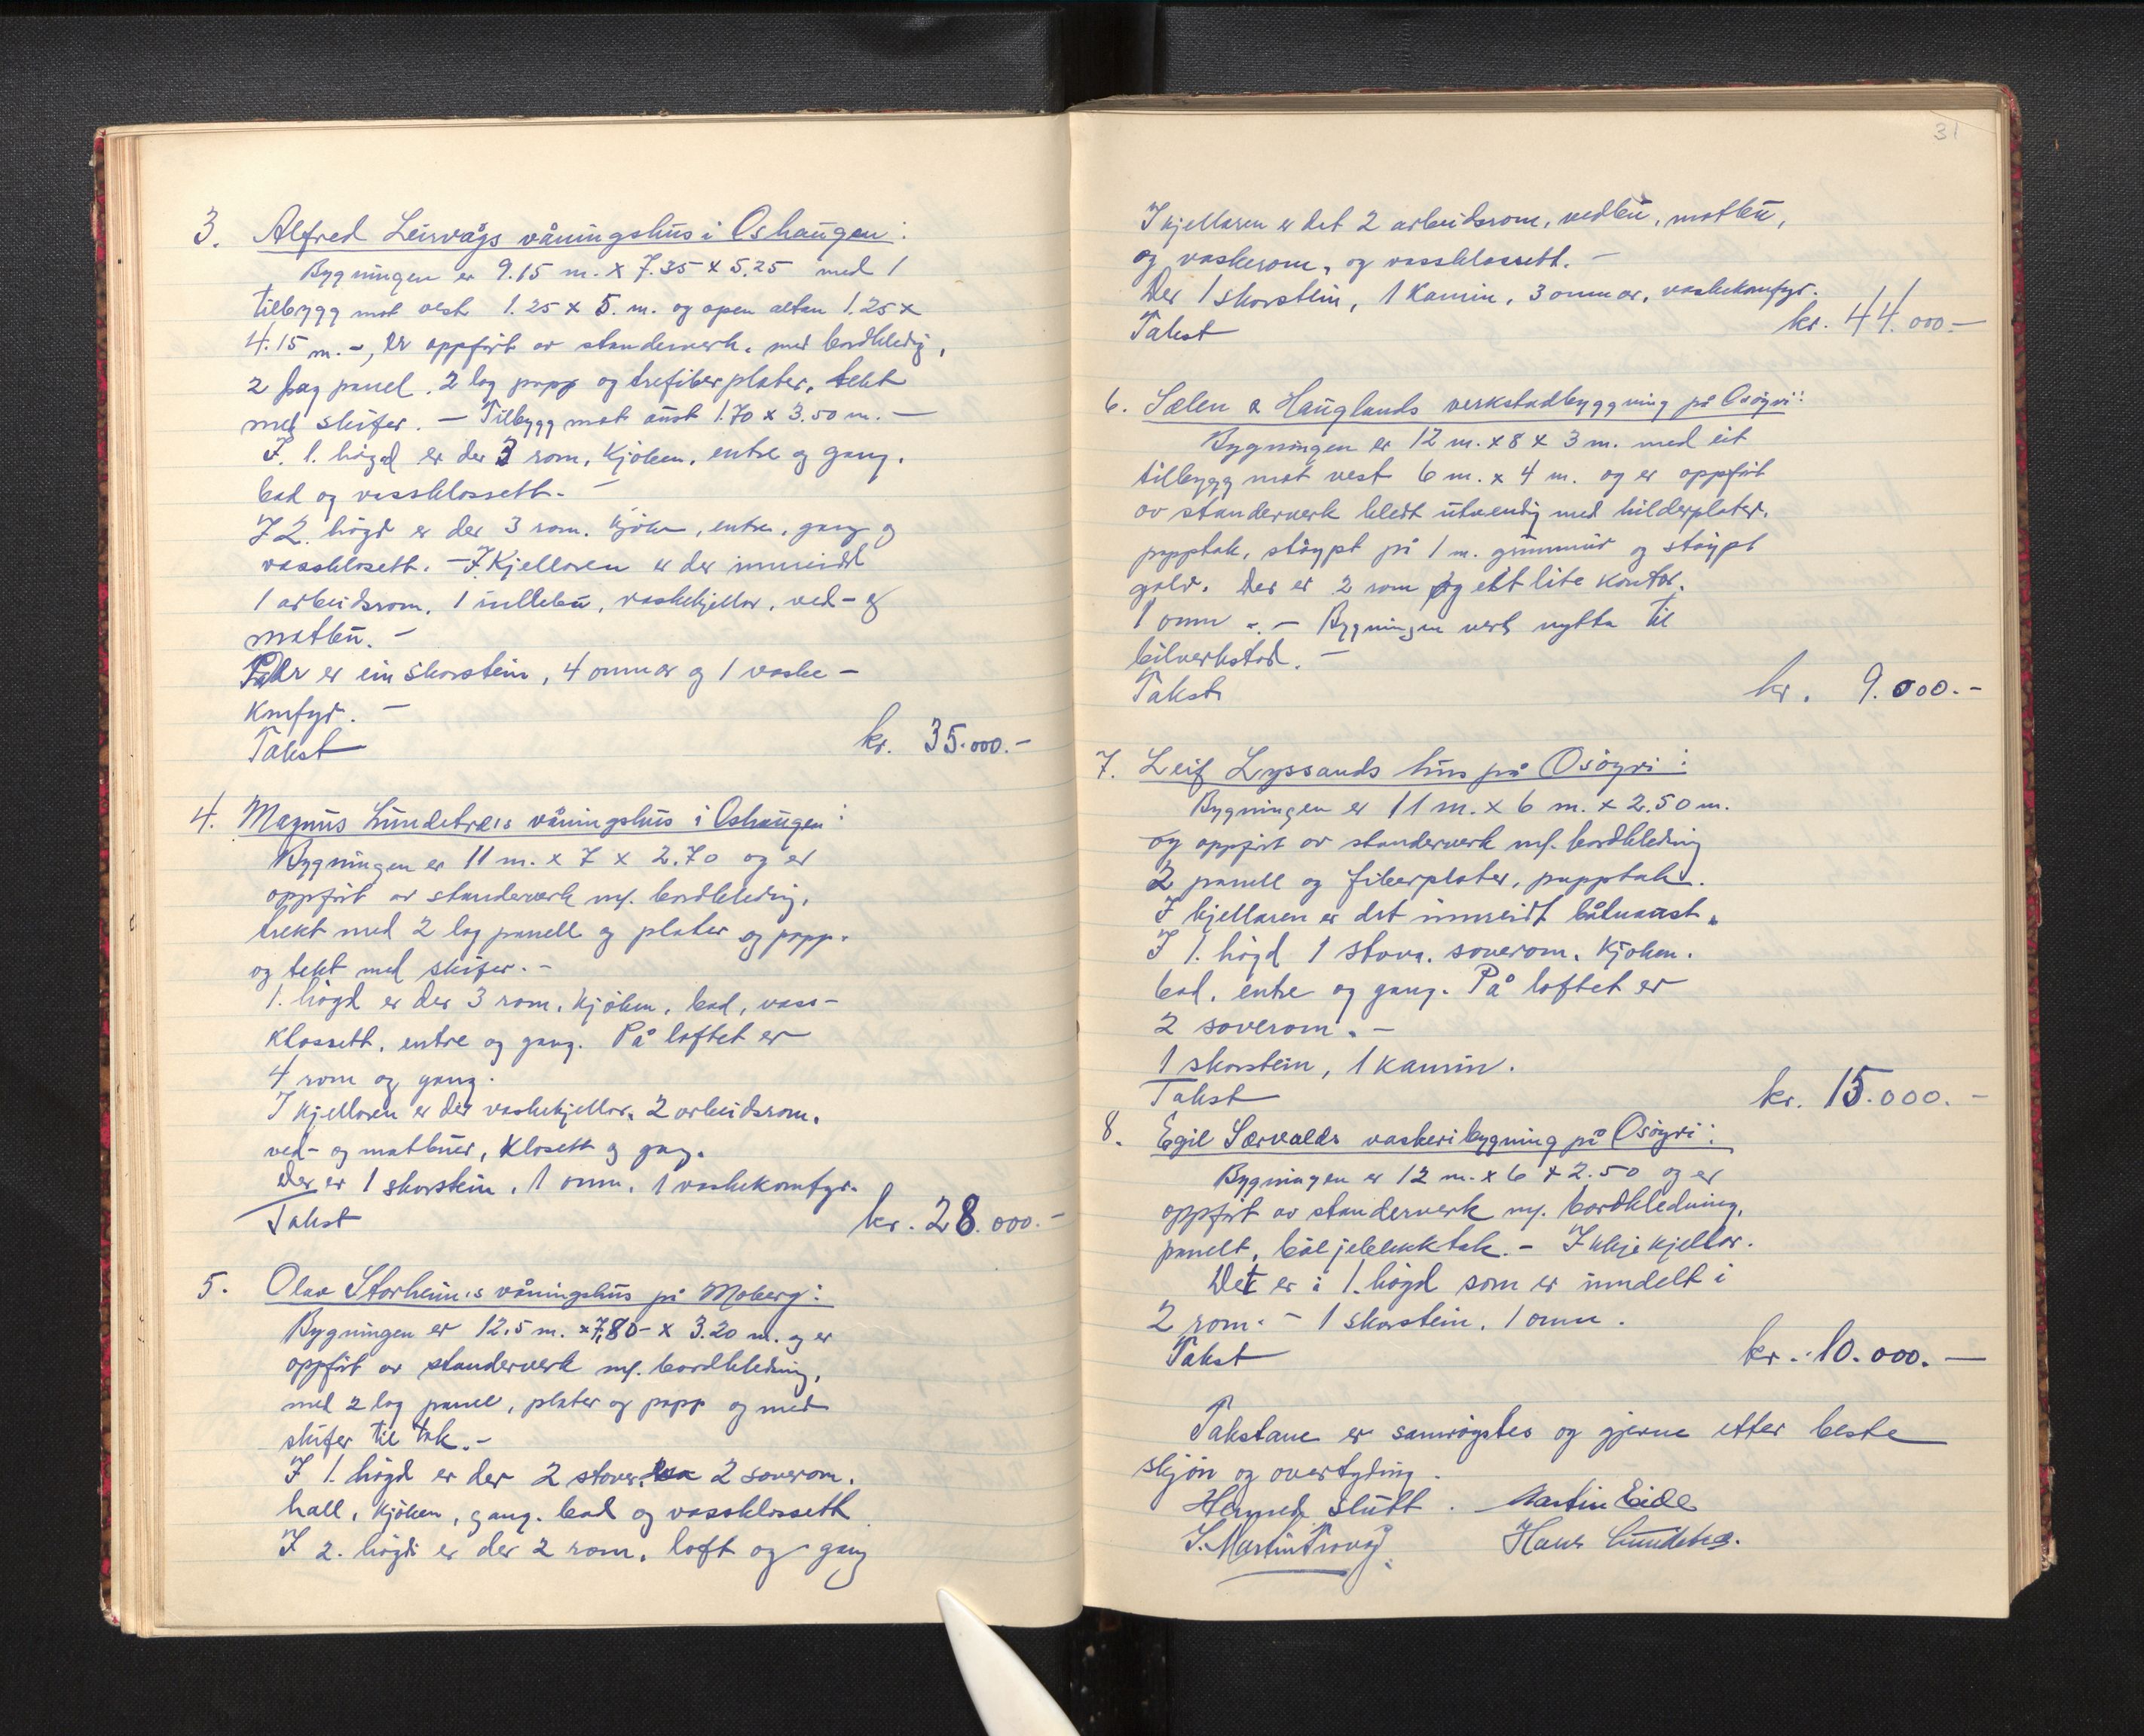 3. Alfred Leirvågs våningshus i Oshaugen:
Bygningen er 9.15 m. x 7.35 x 5.25 med 1
tilbygg mot vest 1.25 x 5. m. og open altan 1.25 x
4.15 m. -, er oppført av standerverk, med bordkledig,
2 lag panel. 2 lag papp og trefiberplater, tekt
med skifer. - Tilbygg mot aust 1.70 x 3.50 m. -
I. 1. högd er der 3 rom, kjöken, entre og gang.
bad og vassklossett. -
I 2. högd er der 3 rom. kjöken, entre, gang og
vassklosett. - I Kjellaren er der innreidd
1 arbeidsrom, 1 rullebu, vaskekjellar, ved- og
matbu. -
Der er ein skorstein, 4 omnar og 1 vaske-
komfyr. -
Takst kr. 35.000.-
4. Magnus Lundetræ's våningshus i Oshaugen:
Bygningen er 11 m. x 7 x 2.70 og er
oppfört av standerverk m/. bordkledning,
trekt med 2 lag panell og plater og papp.
og tekt med skifer. -
1. högd er der 3 rom, kjöken, bad, vass-
klossett, entre og gang. På loftet er
4 rom og gang.
I kjellaren er der vaskekjellar, 2 arbeidsrom,
ved- og matbuer, klosett og gang.
Der er 1 skorstein, 1 omn, 1 vaskekomfyr.
Takst kr. 28.000.-
5. Olav Storheim's våningshus på Moberg:
Bygningen er 12.5 m. x 7,80- x 3.20 m. og er
oppfört av standerverk m/. bordkledning,
med 2 lag panel, plater og papp og med
skifer til tak. -
I 1. högd er der 2 stover, 2 soverom,
hall, kjöken, gang. bad og vassklossett
I 2. högd er der 2 rom, loft og gang
31
I kjellaren er det 2 arbeidsrom, vedbu, matbu,
og vaskerom, og vassklossett. -
Der 1 skorstein, 1 Kamin, 3 omnar, vaskekomfyr.
Takst kr. 44.000.-
6. Sælen & Hauglands verkstadbyggning på Osöyri:
Bygningen er 12 m. x 8 x 3 m. med eit
tilbygg mot vest 6 m. x 4 m. og er oppfört
av standerverk kledt utvendig med hilderplater.
papptak, stöypt på 1 m. grunnmur og stöypt
golv. Der er 2 rom og ett lite kontor.
1 omn -. - Bygningen vert nytta til
bilverkstad. -
Takst kr. 9.000.-
7. Leif Lyssands hus på Osöyri:
Bygningen er 11 m. x 6 m. x 2.50 m.
og oppfört av standerverk m/. bordkledning
2 panell og fiberplater, papptak.
I kjellaren er det innreidt båtnaust.
I 1. högd 1 stova, soverom, kjöken.
bad, entre og gang. På loftet er
2 soverom. -
1 skorstein, 1 kamin.
Takst kr. 15.000.-
8. Egil Særvolds vaskeribygning på Osöyri:
Bygningen er 12 m. x 6 x 2.50 og er
oppfört av standerverk m/. bordkledning,
panelt, böljeblekktak. - Ikkje kjellar.
Det er i 1. högd som er inndelt i
2 rom. - 1 skorstein, 1 omn.
Takst kr. 10.000.-
Takstane er samrøystes og gjerne etter beste
skjön og overtyding.
slutt. Martin Eide
Hans Lundetræ.